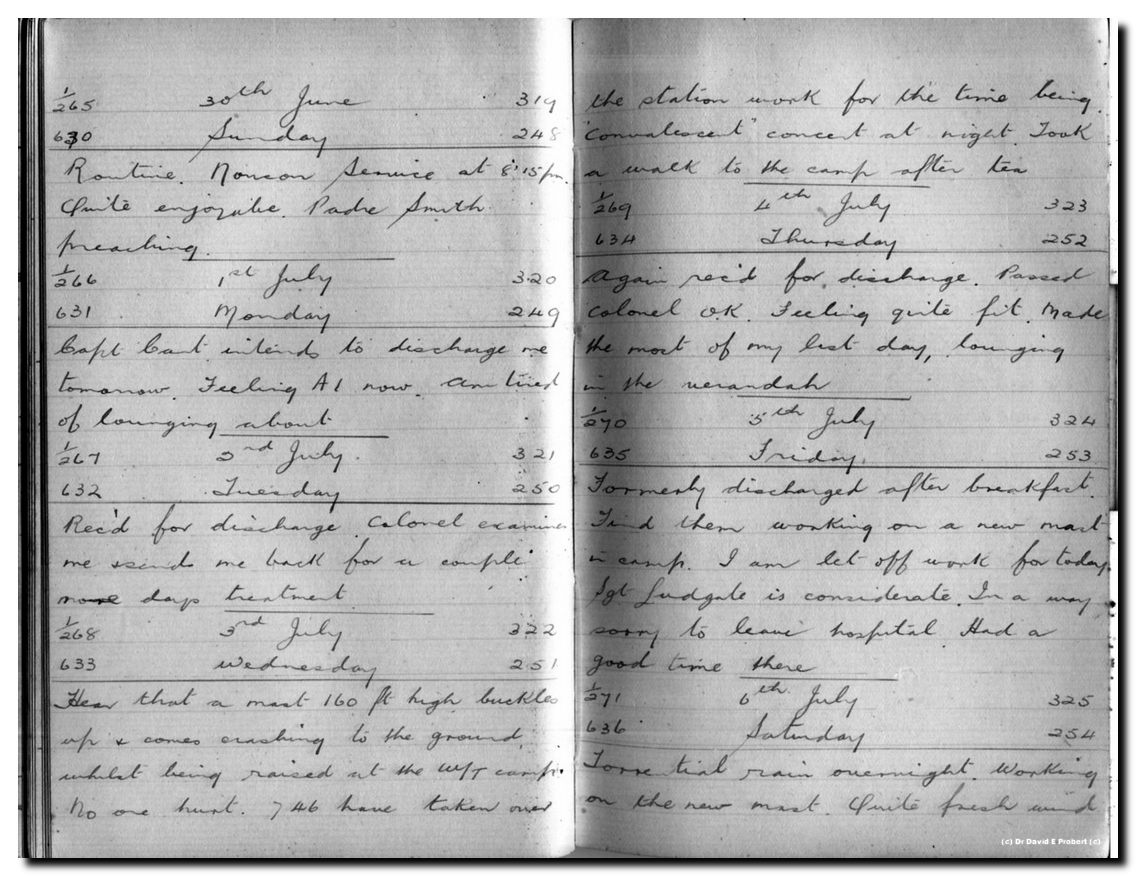 1/265 30th June 319
630 Sunday 248
Routine. Noncon Service at 8.15pm.
Quite enjoyable. Padre Smith
preaching.
1/266 1st July 320
631 Monday 249
Capt Cant intends to discharge me
tomorrow. Feeling A1 now. Am tired
of lounging about
1/267 2nd July. 321
632 Tuesday 250
Rec'd for discharge. Colonel examines
me & sends me back for a couple
more days treatment
1/268 3rd July 322
633 Wednesday 251
Hear that a mast 160 ft high buckles
up & comes crashing to the ground,
whilst being raised at the W/T camp.
No one hurt. 746 have taken over
the station work for the time being.
"Convalescent" concert at night. Took
a walk to the camp after tea
1/269 4th July 323
634 Thursday 252
Again rec'd for discharge. Passed
Colonel O.K. Feeling quite fit. Made
the most of my last day, lounging
in the verandah
1/270 5th July 324
635 Friday. 253
Formerly discharged after breakfast.
Find them working on a new mast
in camp. I am let off work for today.
Sgt Ludgate is considerate. In a way
sorry to leave hospital Had a
good time there
1/271 6th July 325
636 Saturday 254
Torrential rain overnight. Working
on the new mast. Quite fresh wind
(c) Dr David E Probert (c)